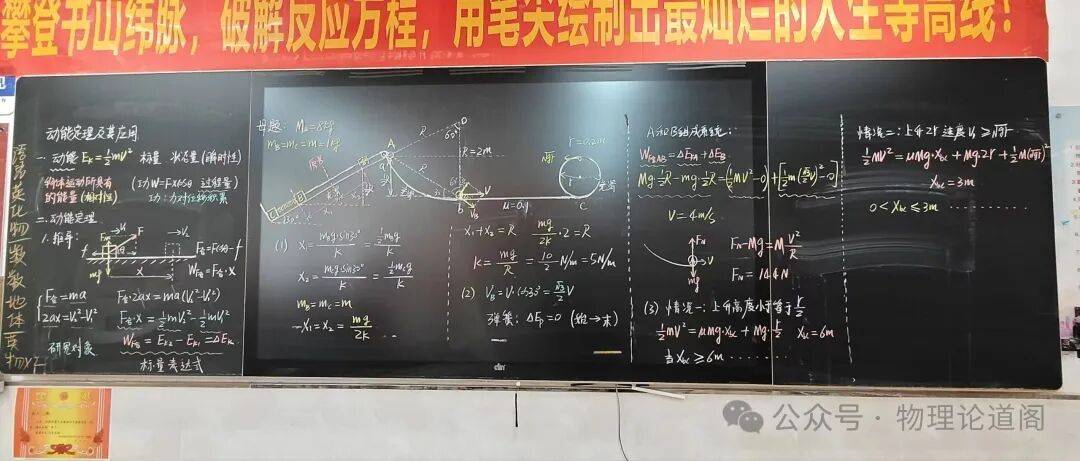 攀登书山纬脉，破解反应方程，用笔尖绘制出最灿烂的人生等高线！
动能定理及其应用
一、动能 Eₖ=½mV² 标量 状态量(瞬时性)
(物体运动所具有的能量(相对性) (功W=FXcosθ 过程量)
功：力对位移的积累
二、动能定理
1、推导：
F合=Fcosθ-f
W F合=F合·X
F合=ma
2ax=V₂²-V₁²
F合·2ax=ma(V₂²-V₁²)
F合·X=½mV₂²-½mV₁²
研究对象
W F合=Eₖ₂-Eₖ₁=ΔEₖ
标量表达式
母题：
m_B=m_C=m=1kg
R
R=2m
A
O
b
μ=0.4
C
r=0.2m
√gr
r
(1) X₁=m_B g·sin30°/K=½m_B g/K
X₂=m_C g·sin30°/K=½m_C g/K
m_B=m_C=m
X₁=X₂=mg/2K
X₁+X₂=R
mg/2K·2=R
K=mg/R=10/2 N/m=5N/m
(2) V_B=V·cos30°=√3/2 V
弹簧：ΔEp=0 (始→末)
A和B组成系统：
W FAB=ΔE_kA+ΔE_kB
Mg·½R-mg·½R=(½MV²-0)+[½m(√3/2 V)²-0]
V=4m/s
F_N
V
mg
F_N-Mg=M V²/R
F_N=144N
(3) 情况一：上升高度小于等于r/2
½MV²=μMg·X_bc+Mg·r/2 X_bc=6m
当X_bc≥6m
情况二：上升2r 速度V₁≥√gr
½MV²=μMg·X_bc+Mg·2r+½M(√gr)²
X_bc=3m
0<X_bc≤3m
公众号·物理论道阁